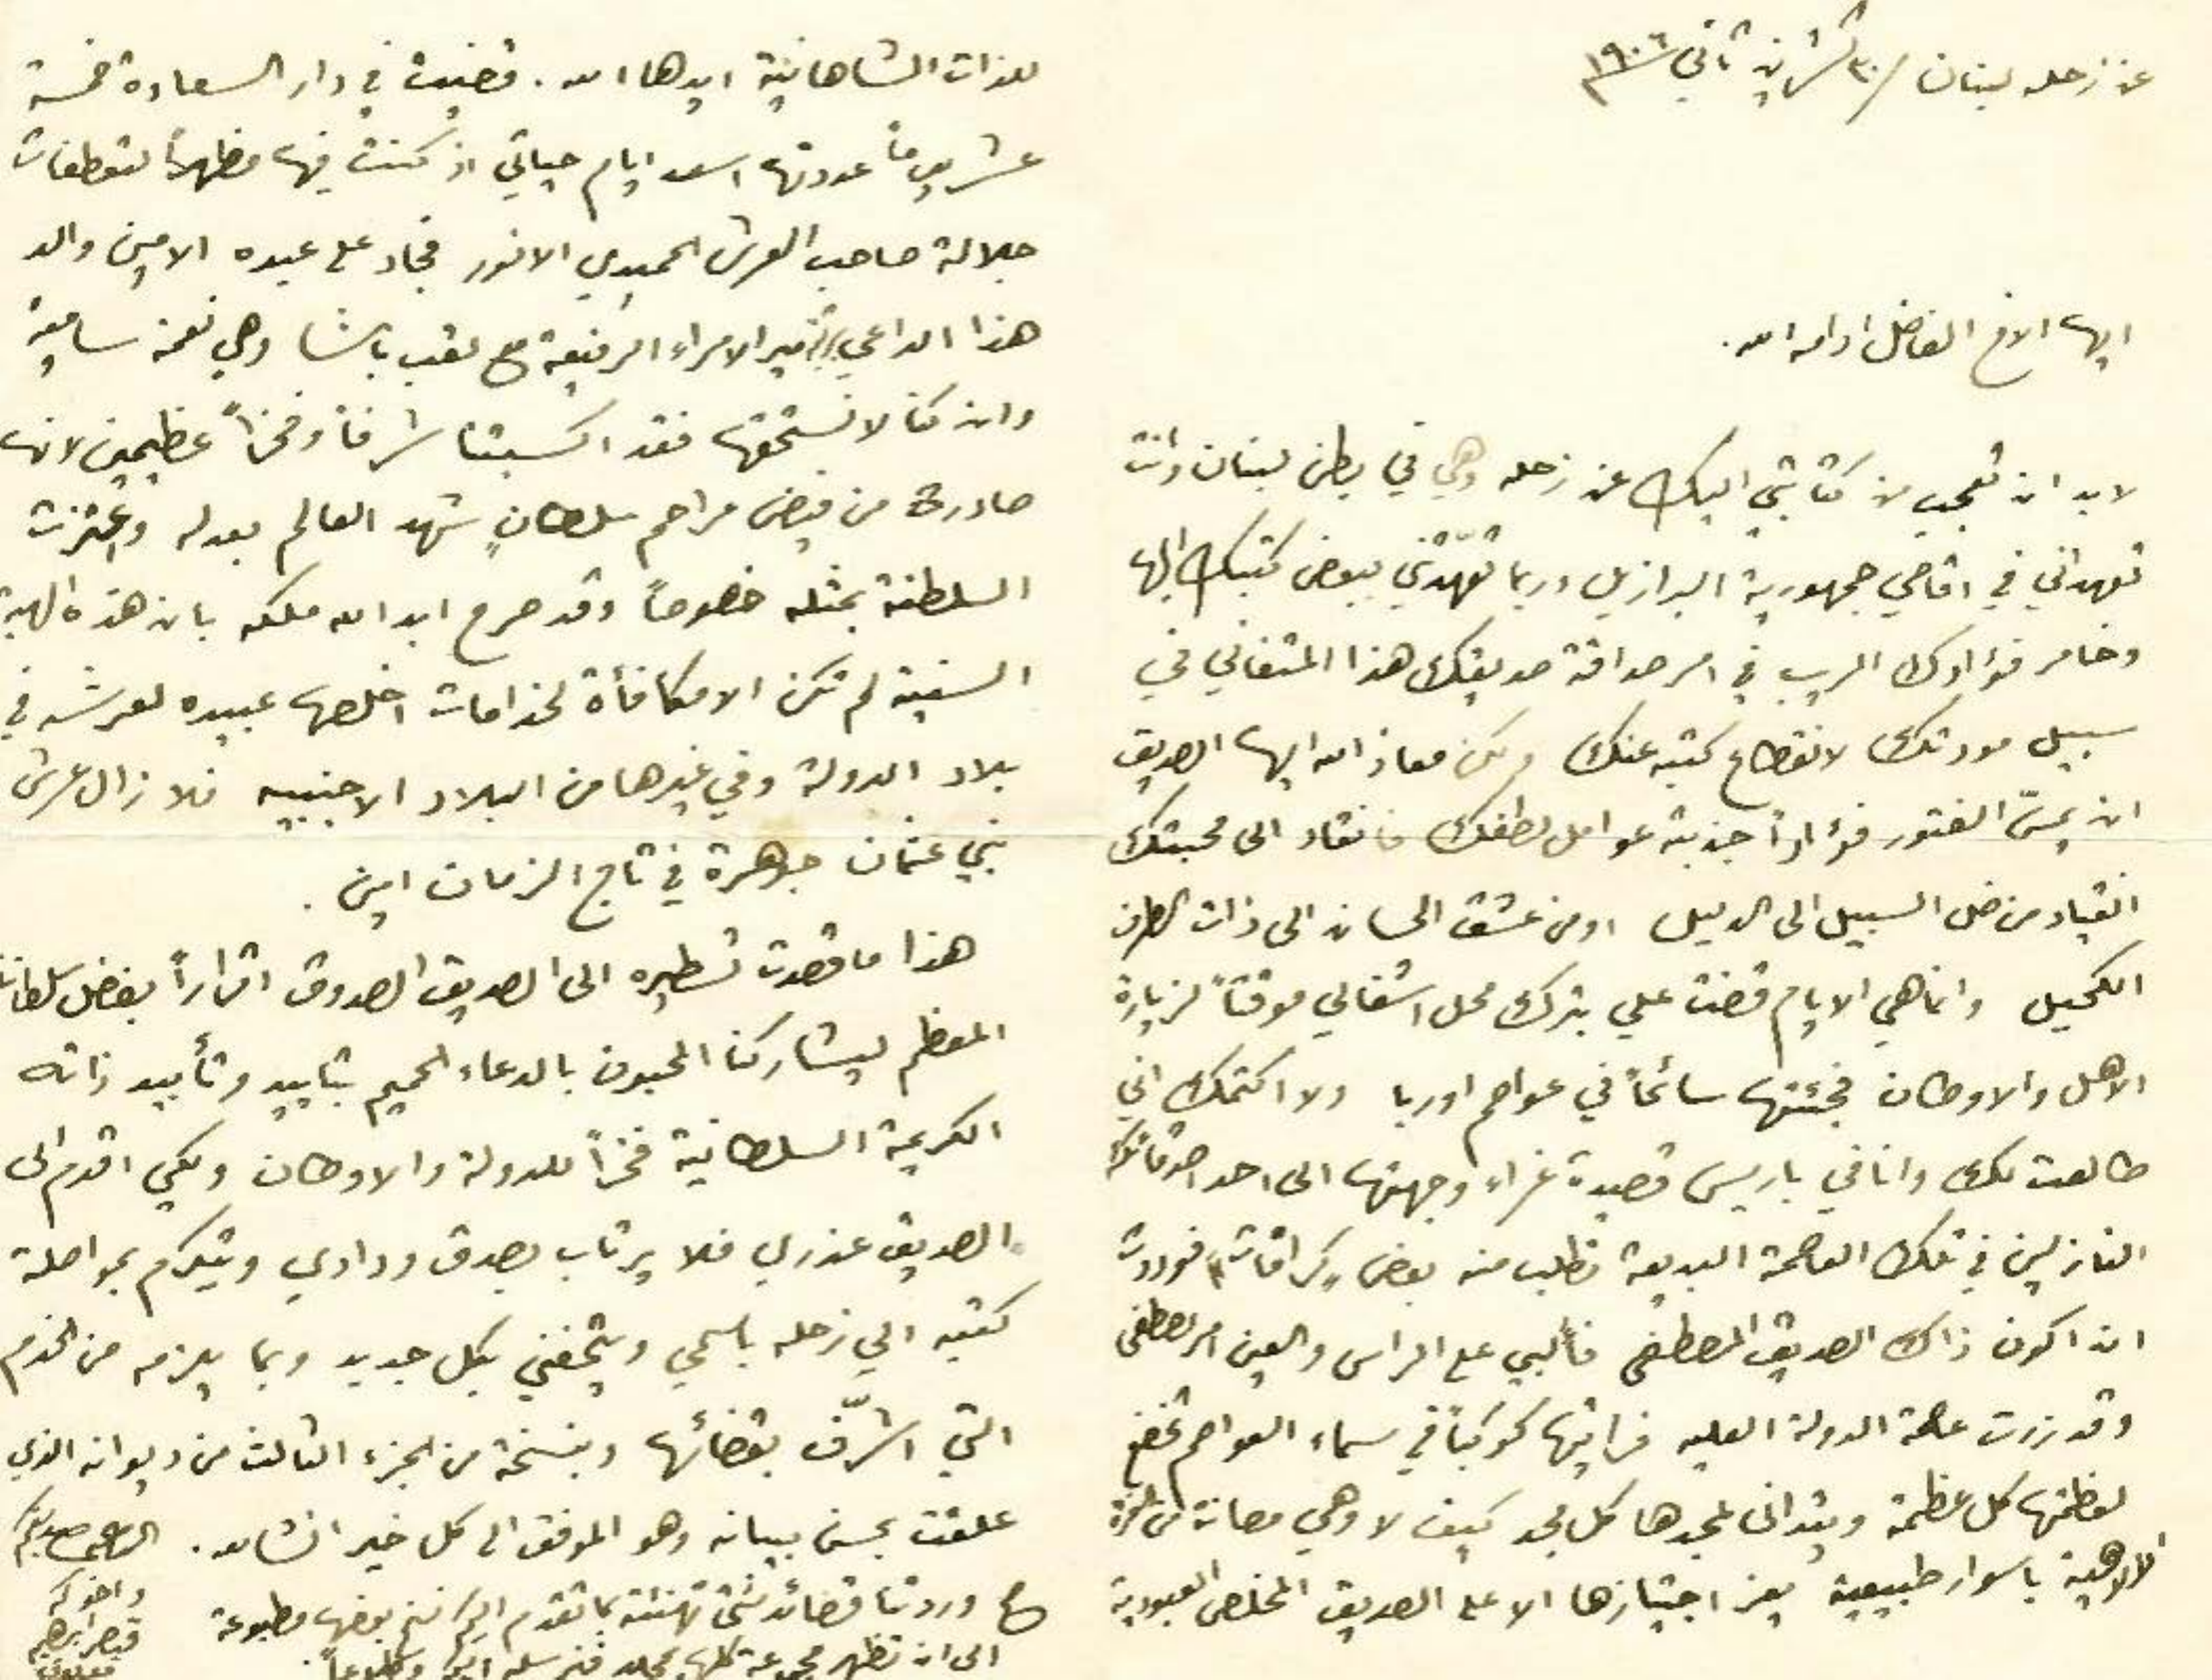 عن زحله لبنان /٣٠ تشرين ثاني ١٩٠٦
ايها الاخ الفاضل ادامه الله.
لا بد ان تعجب من كتابتي اليك عن زحله وهي في بطن لبنان وانت
تعهداني في اقاصي جمهورية البرازيل وربما تعهدتني ببعض كتبك اليها
وخامر فؤادك الريب في امر صداقة صديقك هذا المتفاني في
سبيل مودتك لانقطاع كتبه عنك ولكن معاذ الله ايها الصديق
ان يمسّ الفتور فؤاداً جذبته عوامل لطفك فانقاد الى محبتك
انقياد من ضل السبيل الى الدليل او من عشق الحسان الى ذات الطرف
الكحيل وانما هي الايام قضت علي بترك محل اشغالي موقتاً لزيارة
الاهل والاوطان فجئتها سائحاً في عواصم اوربا ولا اكتمك اني
طالعت لك وانا في باريس قصيدة غراء وجهتها الى احد اصدقائك
النازلين في تلك العاصمة البديعة تطلب منه بعض كرافات فوددت
ان اكون ذاك الصديق المصطفى فألبي على الراس والعين امر المصطفي
وقد زرت عاصمة الدولة العليه فرايتها كوكباً في سماء العواصم تخضع
لعظمتها كل عظمة ويتدانى لمجدها كل مجد كيف لا وهي مصانة من
الالاهية باسوار طبيعية يعز اجتيازها الا على الصديق المخلص العبودية
للذات الشاهانية ايدها الله. فقضيت في دار السعادة خمسة
عشر يوماً عددتها اسعد ايام حياتي اذ كنت فيها مظهراً لتعطفات
جلالة صاحب العرش الحميدي الانور فجاد على عبده الامين والد
هذا الداعي برتبة مير الامراء الرفيعة مع لقب باشا وهي نعمة سامية
وان كنا لا نستحقها فقد اكسبتنا شرفاً وفخراً عظيمين لانها
صادرة من فيض مراحم سلطانٍ شهد العالم بعدله واعتزت
السلطنة بمثله خصوصاً وقد صرح ايد الله ملكه بان هذه الهبة
السنية لم تكن الا مكافأة لخدامات اخلصها عبيده لعرشه في
بلاد الدولة وفي غيرها من البلاد الاجنبيه فلا زال عرش
بني عثمان جوهرة في تاج الزمان امين.
هذا ما قصدت تسطيره الى الصديق الصدوق اقراراً بفضل سلطاننا
المعظم ليشاركنا المحبون بالدعاء الحميم بتاييد وتأييد ذاته
الكريمة السلطانية فخراً للدولة والاوطان ولكي اقدم الى
الصديق عذري فلا يرتاب بصدق ودادي ويتكرم بمواصلة
كتبه الي زحله باسمي ويتحفني بكل جديد وبما يلزمه من الخدم
التي اتشرّف بقضائها وبنسخة من الجزء الثالث من ديوانه الذي
علقت بحسن بيانه وهو الموفق الى كل خير انشالله. صديقكم
واخوكم
قيصر ابرهيم
معلوف
ع وردتنا قصائد شتى تهنئة بما تقدم اليكم بعضها مطبوعة
الى ان تظهر مجموعة كلها بمجلد فنرسله اليكم